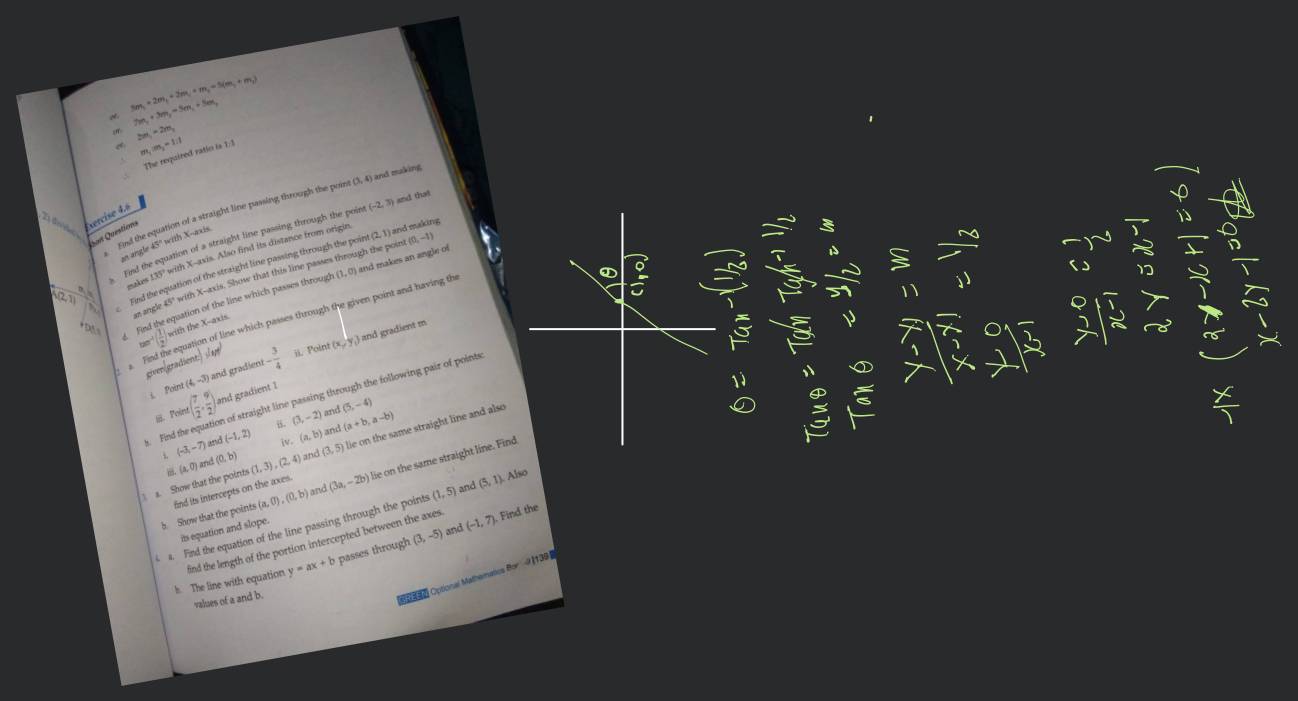 or, 5m₁ + 2m₁ + 2m₂ + m₂ = 5(m₁ + m₂)
or, 7m₁ + 3m₂ = 5m₁ + 5m₂
or, 2m₁ = 2m₂
∴ m₁:m₂ = 1:1
∴ The required ratio is 1:1
Exercise 4.6
Short Questions
a. Find the equation of a straight line passing through the point (3, 4) and making
an angle 45° with X–axis.
b. Find the equation of a straight line passing through the point (–2, 3) and that
makes 135° with X–axis. Also find its distance from origin.
c. Find the equation of the straight line passing through the point (2, 1) and making
an angle 45° with X–axis. Show that this line passes through the point (0, –1)
d. Find the equation of the line which passes through (1, 0) and makes an angle of
tan⁻¹(1/2) with the X–axis.
2. a. Find the equation of line which passes through the given point and having the
given gradient:
i. Point (4, –3) and gradient –3/4 ii. Point (x₁, y₁) and gradient m
iii. Point (7/2, 9/2) and gradient 1
b. Find the equation of straight line passing through the following pair of points:
i. (–3, –7) and (–1, 2) ii. (3, – 2) and (5, – 4)
iii. (a, 0) and (0, b) iv. (a, b) and (a + b, a –b)
3. a. Show that the points (1, 3) , (2, 4) and (3, 5) lie on the same straight line and also
find its intercepts on the axes.
b. Show that the points (a, 0) , (0, b) and (3a, – 2b) lie on the same straight line. Find
its equation and slope.
4. a. Find the equation of the line passing through the points (1, 5) and (5, 1). Also
find the length of the portion intercepted between the axes.
b. The line with equation y = ax + b passes through (3, –5) and (–1, 7). Find the
values of a and b.
GREEN Optional Mathematics |139
A(2, 1)
θ
(1,0)
θ = Tan⁻¹(1/2)
Tanθ = Tan Tan⁻¹ 1/2
Tan θ = 1/2 = m
y-y1/x-x1 = m
y-0/x-1 = 1/2
y-0/x-1 = 1/2
2y = x-1
-1x (2y-x+1=0)
x-2y-1=0